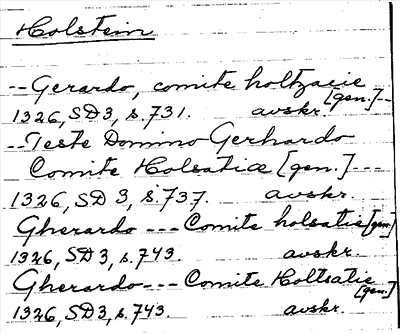 Holstein
-- Gerardo, comite holtzacie [gen.] --
1326, SD 3, s. 731. avskr.
-- Teste Domino Gerhardo
Comite Holsatiæ [gen.] ---
1326, SD 3, s. 737. avskr.
Gherardo --- Comite holsatie [gen.]
1326, SD 3, s. 743. avskr.
Gherardo --- Comite Holtsatie [gen.]
1326, SD 3, s. 743. avskr.